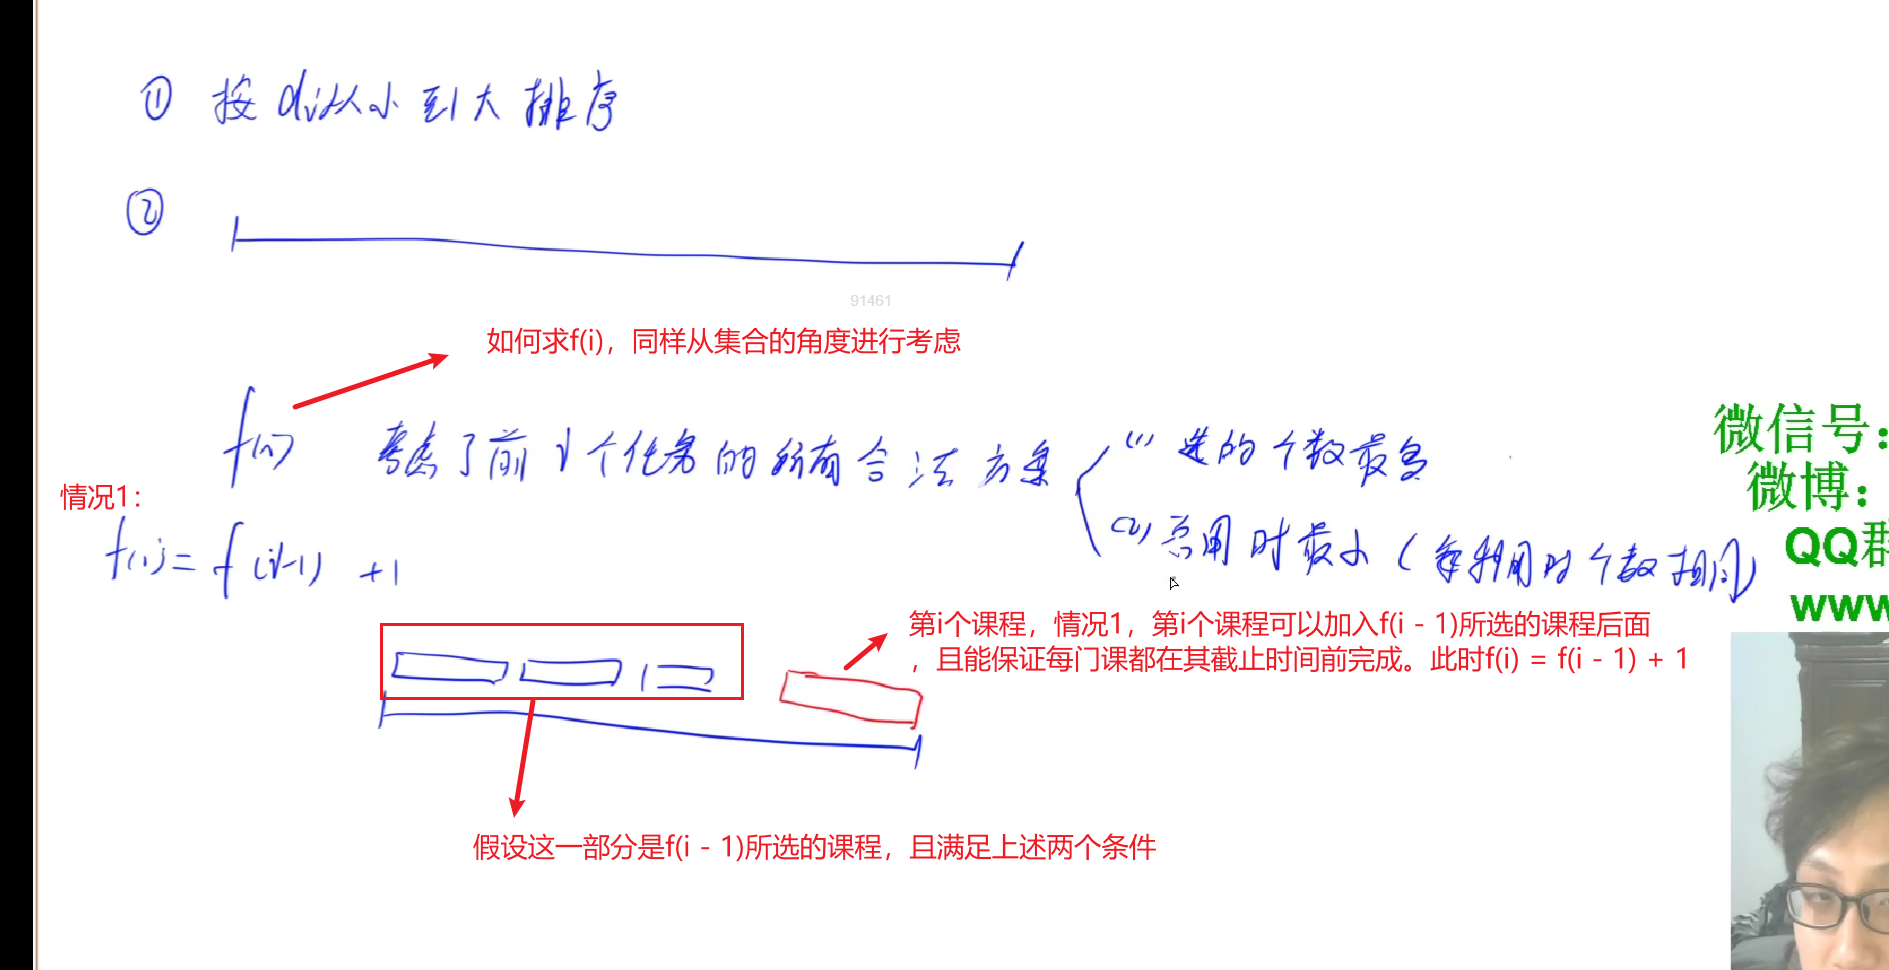 ① 按di从小到大排序
②
91461
如何求f(i)，同样从集合的角度进行考虑
f(i) 考虑了前i个任务的所有合法方案 (1) 选的个数最多
(2) 总用时最小 (在选用的个数相同)
情况1：
f(i) = f(i-1) +1
第i个课程，情况1，第i个课程可以加入f(i - 1)所选的课程后面
，且能保证每门课都在其截止时间前完成。此时f(i) = f(i - 1) + 1
假设这一部分是f(i - 1)所选的课程，且满足上述两个条件
微信号：
微博：
QQ群
www